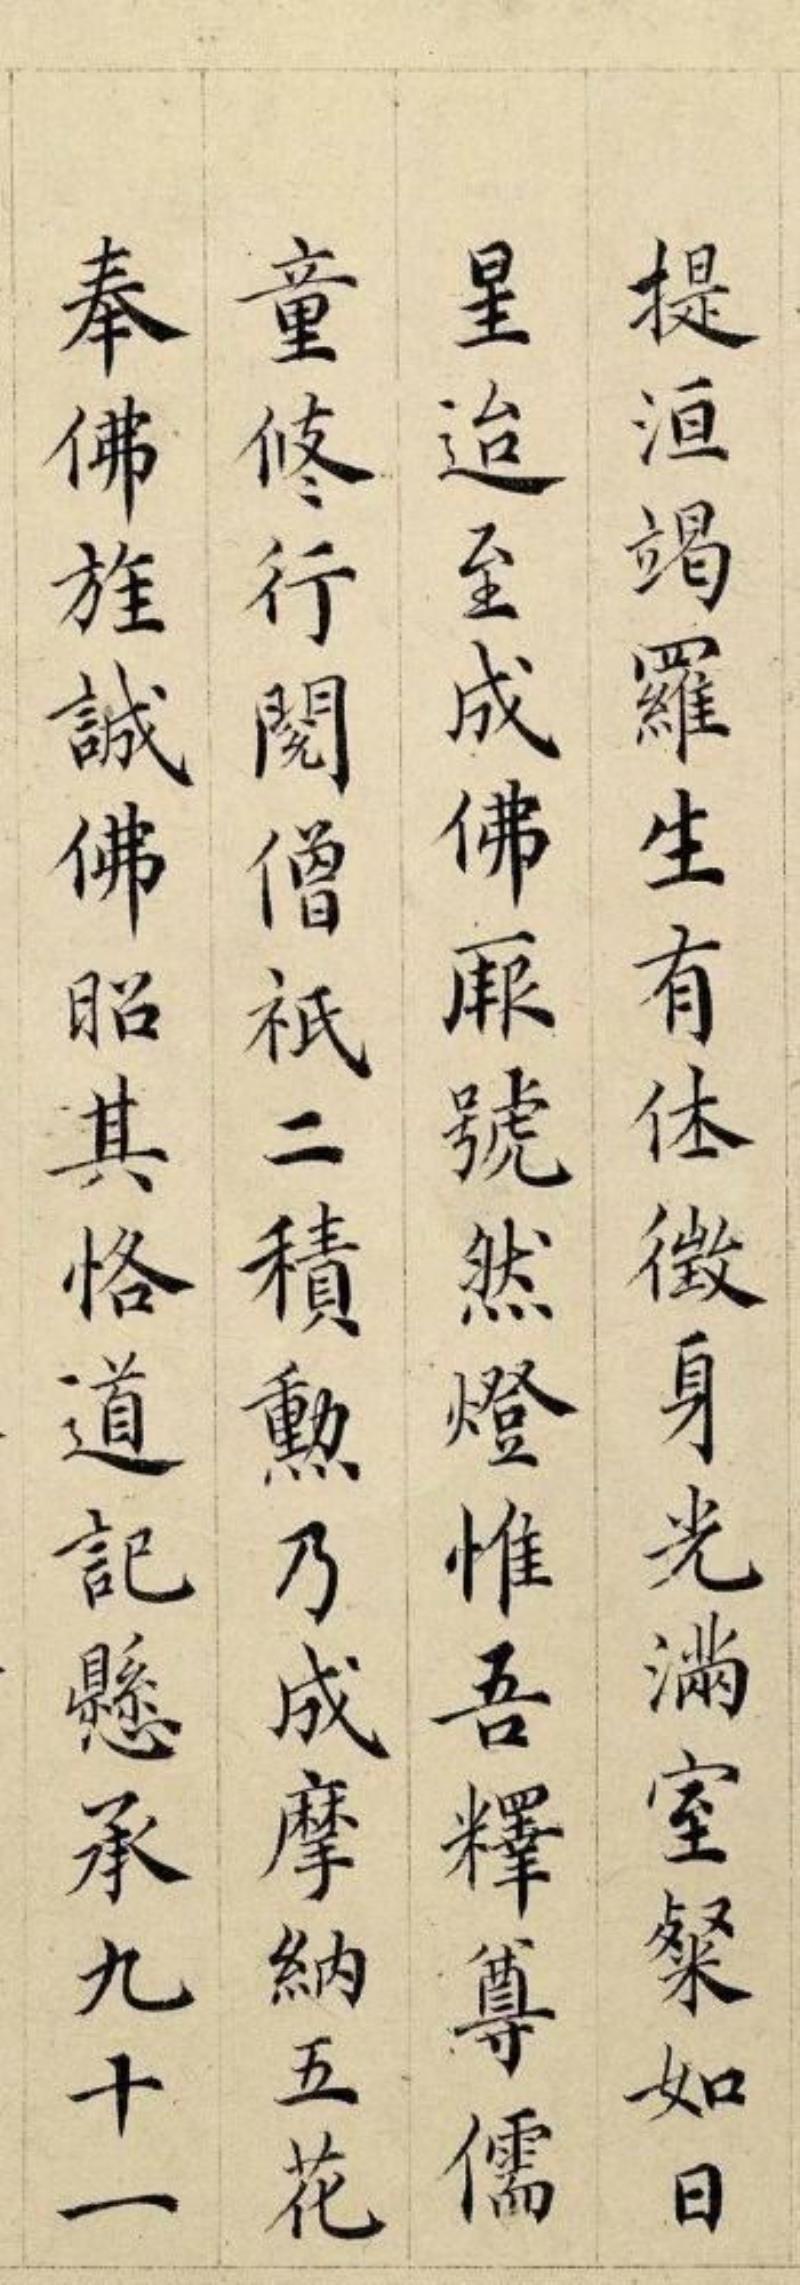 提洹竭羅生有休徵身光滿室粲如日
星迨至成佛厥號然燈惟吾釋尊儒
童修行閱僧祇二積勲乃成摩納五花
奉佛旌誠佛昭其恪道記懸承九十一